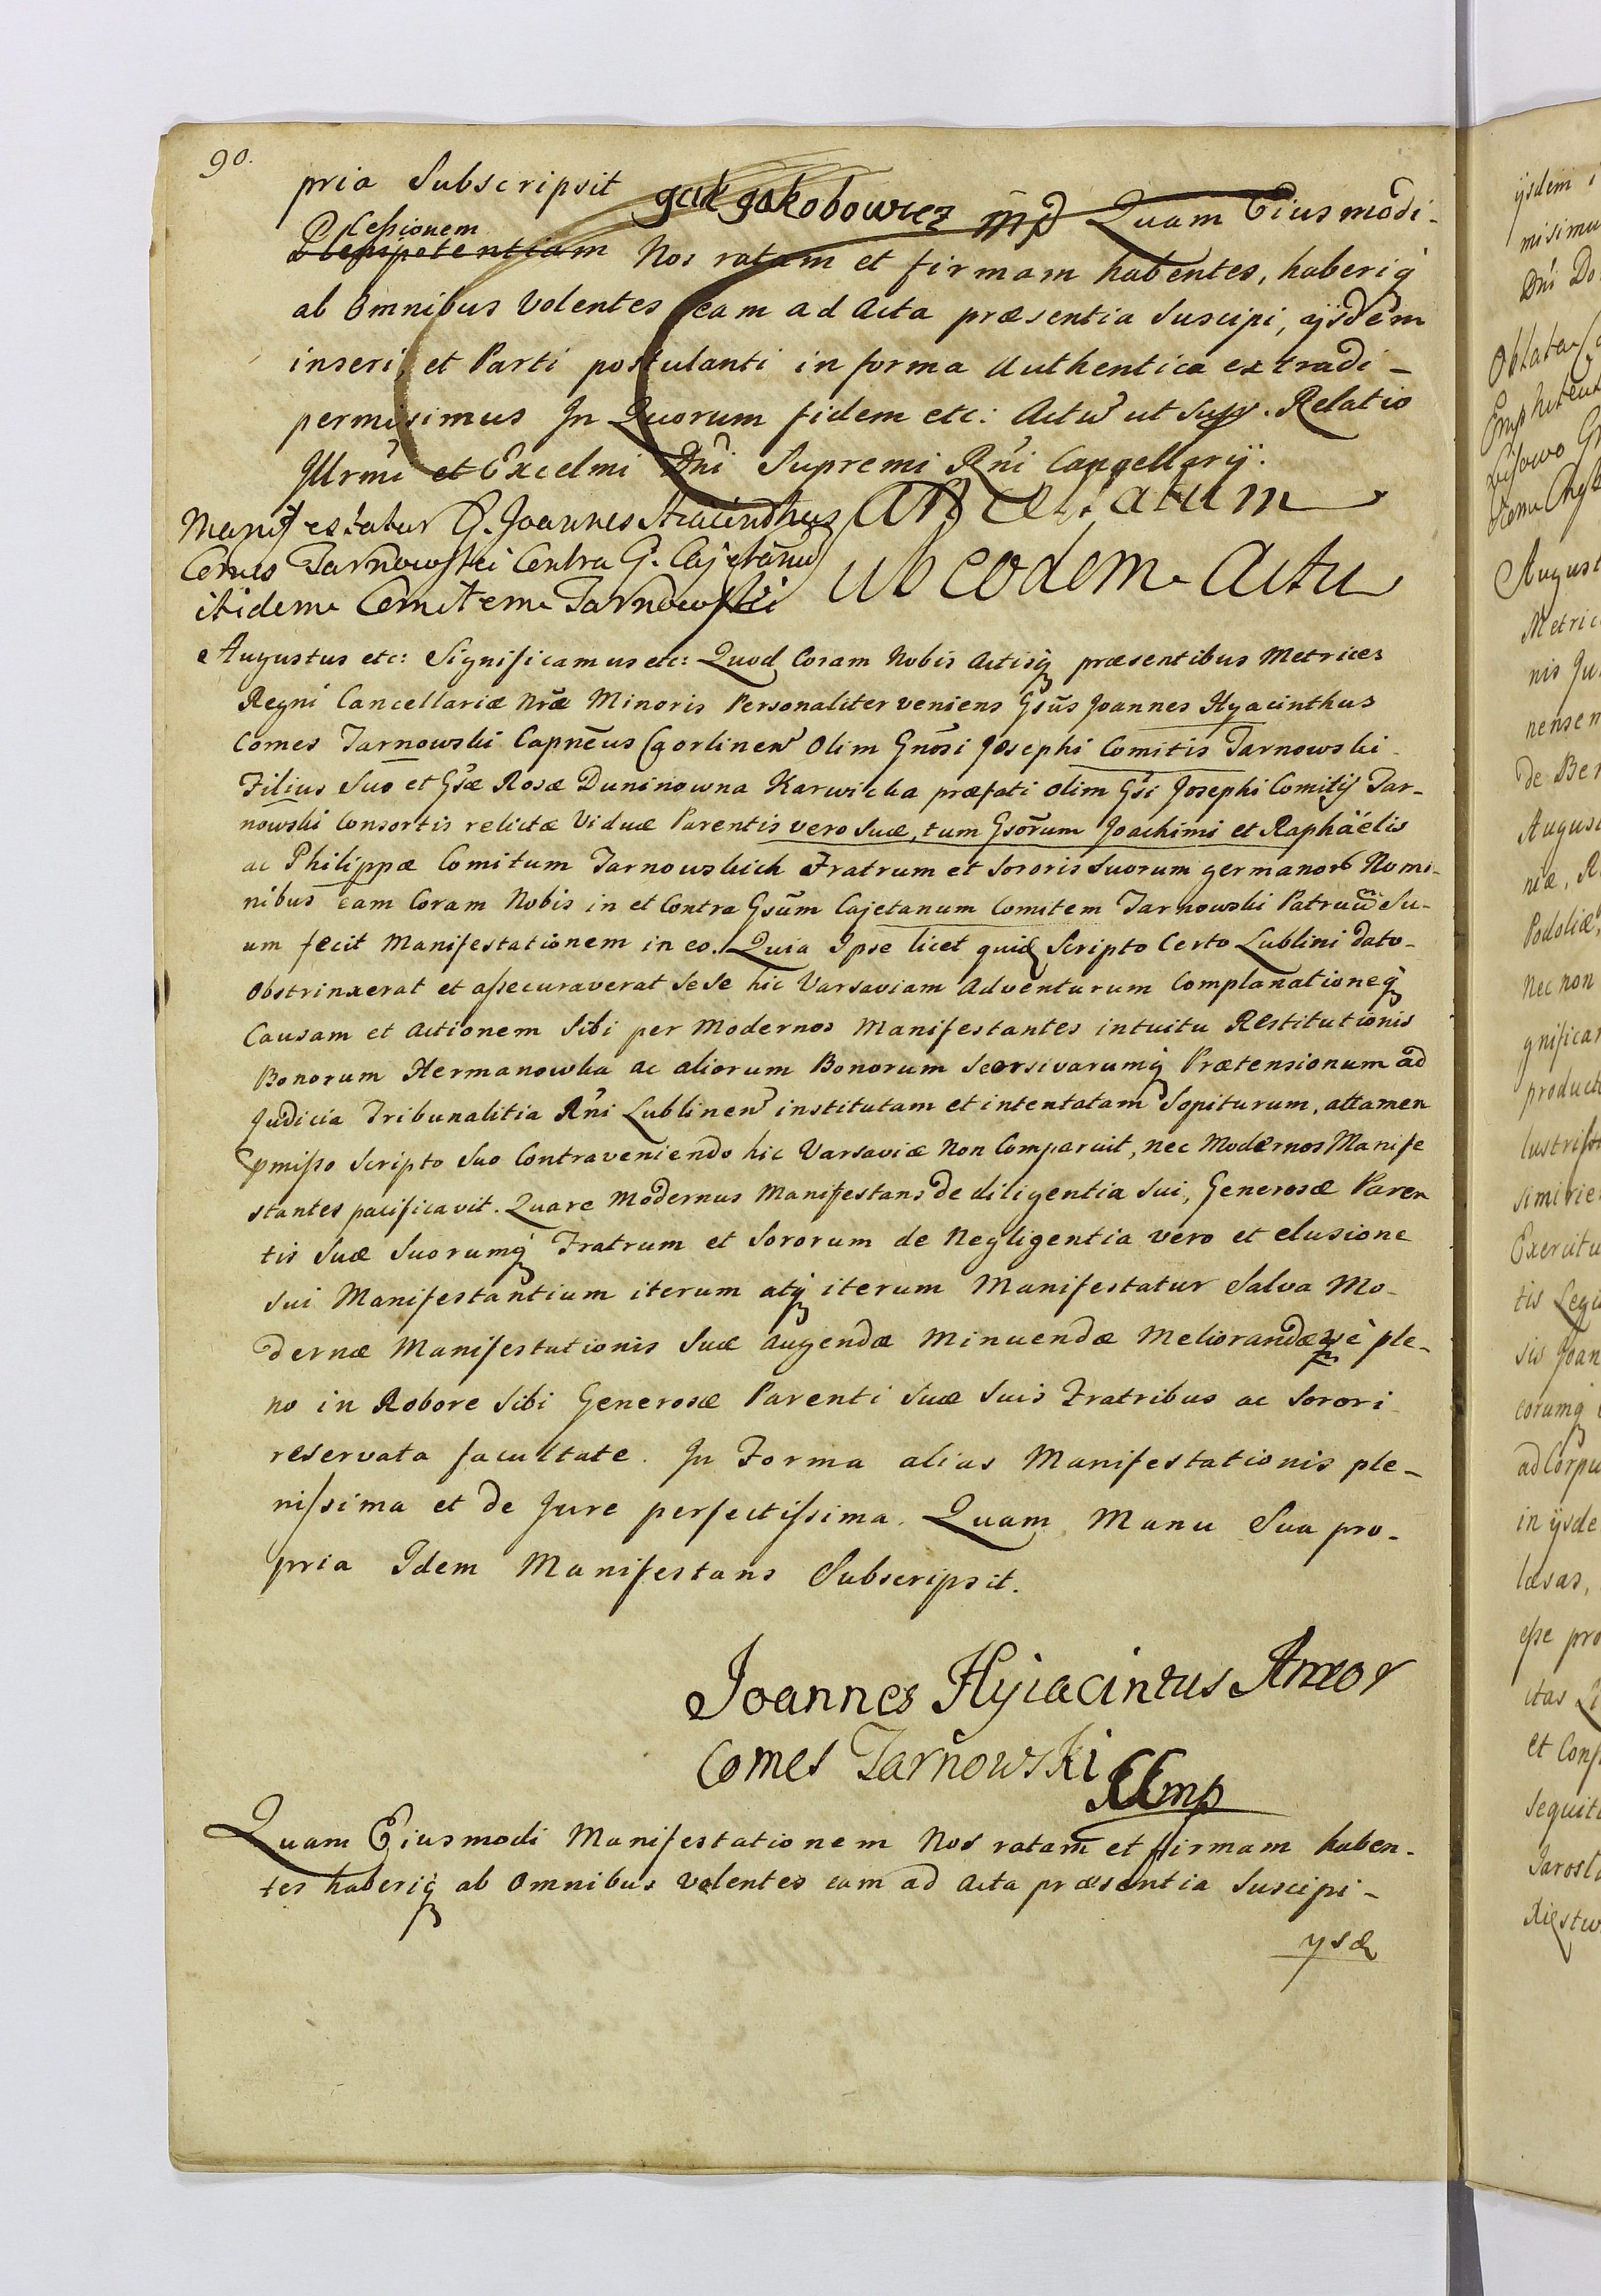 90.
pria Subscripsit Jak Jakobowicz mp Quam Eiusmodi-
Cessionem
Plenipotentiam Nos ratam et firmam habentes, haberiq
ab Omnibus Volentes eam ad Acta præsentia Suscipi, ijsdem
inseri, et Parti postulanti in forma Authentica extradi-
permisimus In Quorum fidem etc: Actũ ut Supr. Relatio
Illrmi et Excelmi Dni Supremi Rni Cancellarij.
Manifestatur G. Joannes Hiacinthus Cancellatum
Comes Tarnowski Contra G. Cajetanũ ab eodem Actu
itidem Comitem Tarnowski
Augustus etc: Significamus etc: Quod Coram Nobis Actisq præsentibus Metrices
Regni Cancellariæ Nræ Minoris Personaliter veniens Gsũs Joannes Hyacinthus
Comes Tarnowski Capnẽus Gorlinen Olim Gnõsi Josephi Comitis Tarnowski
Filius Suo et Gsæ Rosæ Duninowna Karwicka præfati olim Gsi Josephi Comitis Tar-
nowski Consortis relictæ Viduæ Parentis vero Suæ, tum Gsõrum Joachimi et Raphaelis
ac Philippæ Comitum Tarnowskich Fratrum et Sororis Suorum germanor Nomi-
nibus eam Coram Nobis in et Contra Gsũm Cajetanum Comitem Tarnowski Patruũ Su-
um fecit Manifestationem in eo. Quia Ipse licet quid Scripto Certo Lublini dato-
Obstrinxerat et assecuraverat sese hic Varsaviam Adventurum Complanationeq
Causam et Actionem Sibi per Modernos Manifestantes intuitu Restitutionis
Bonorum Hermanowka ac aliorum Bonorum Seorsivarumq Prætensionum ad
Judicia Tribunalitia Rni Lublinen institutam et intentatam Sopiturum, attamen
pmisso Scripto Suo Contraveniendo hic Varsaviæ Non Comparuit, nec Modernos Manife
stantes pacificavit. Quare Modernus Manifestans de diligentia Sui, Generosæ Paren
tis Suæ Suorumq Fratrum et Sororum de Negligentia vero et elusione
Sui Manifestantium iterum atq iterum Manifestatur Salva Mo-
dernæ Manifestationis Suæ augendæ Minuendæ Meliorandæ è ple-
no in Robore Sibi Generosæ Parenti Suæ Suis Fratribus ac Sorori
reservata facultate. In Forma alias Manifestationis ple-
nissima et de Jure perfectissima. Quam Manu Sua pro-
pria Idem Manifestans Subscripsit.
Joannes Hyiacintus Amor
Comes Tarnowski
mp
Quam Eiusmodi Manifestationem Nos ratam et firmam haben-
tes haberiq ab Omnibus Volentes eam ad Acta præsentia Suscipi-
ysd
ijsdem
misimu
Dni Do
Oblata
Emphiteut
August
Metric
nis Ju
nensem
de Ber
Augus
niæ, R
Podoliæ,
Nec non
gnifica
product
lustriss
simi
Exercitu
tis Legi
sis Joan
eorumq
ad Corpu
in ijsde
læsas,
esse pro
itas
et Cons
Sequit
Jarosl